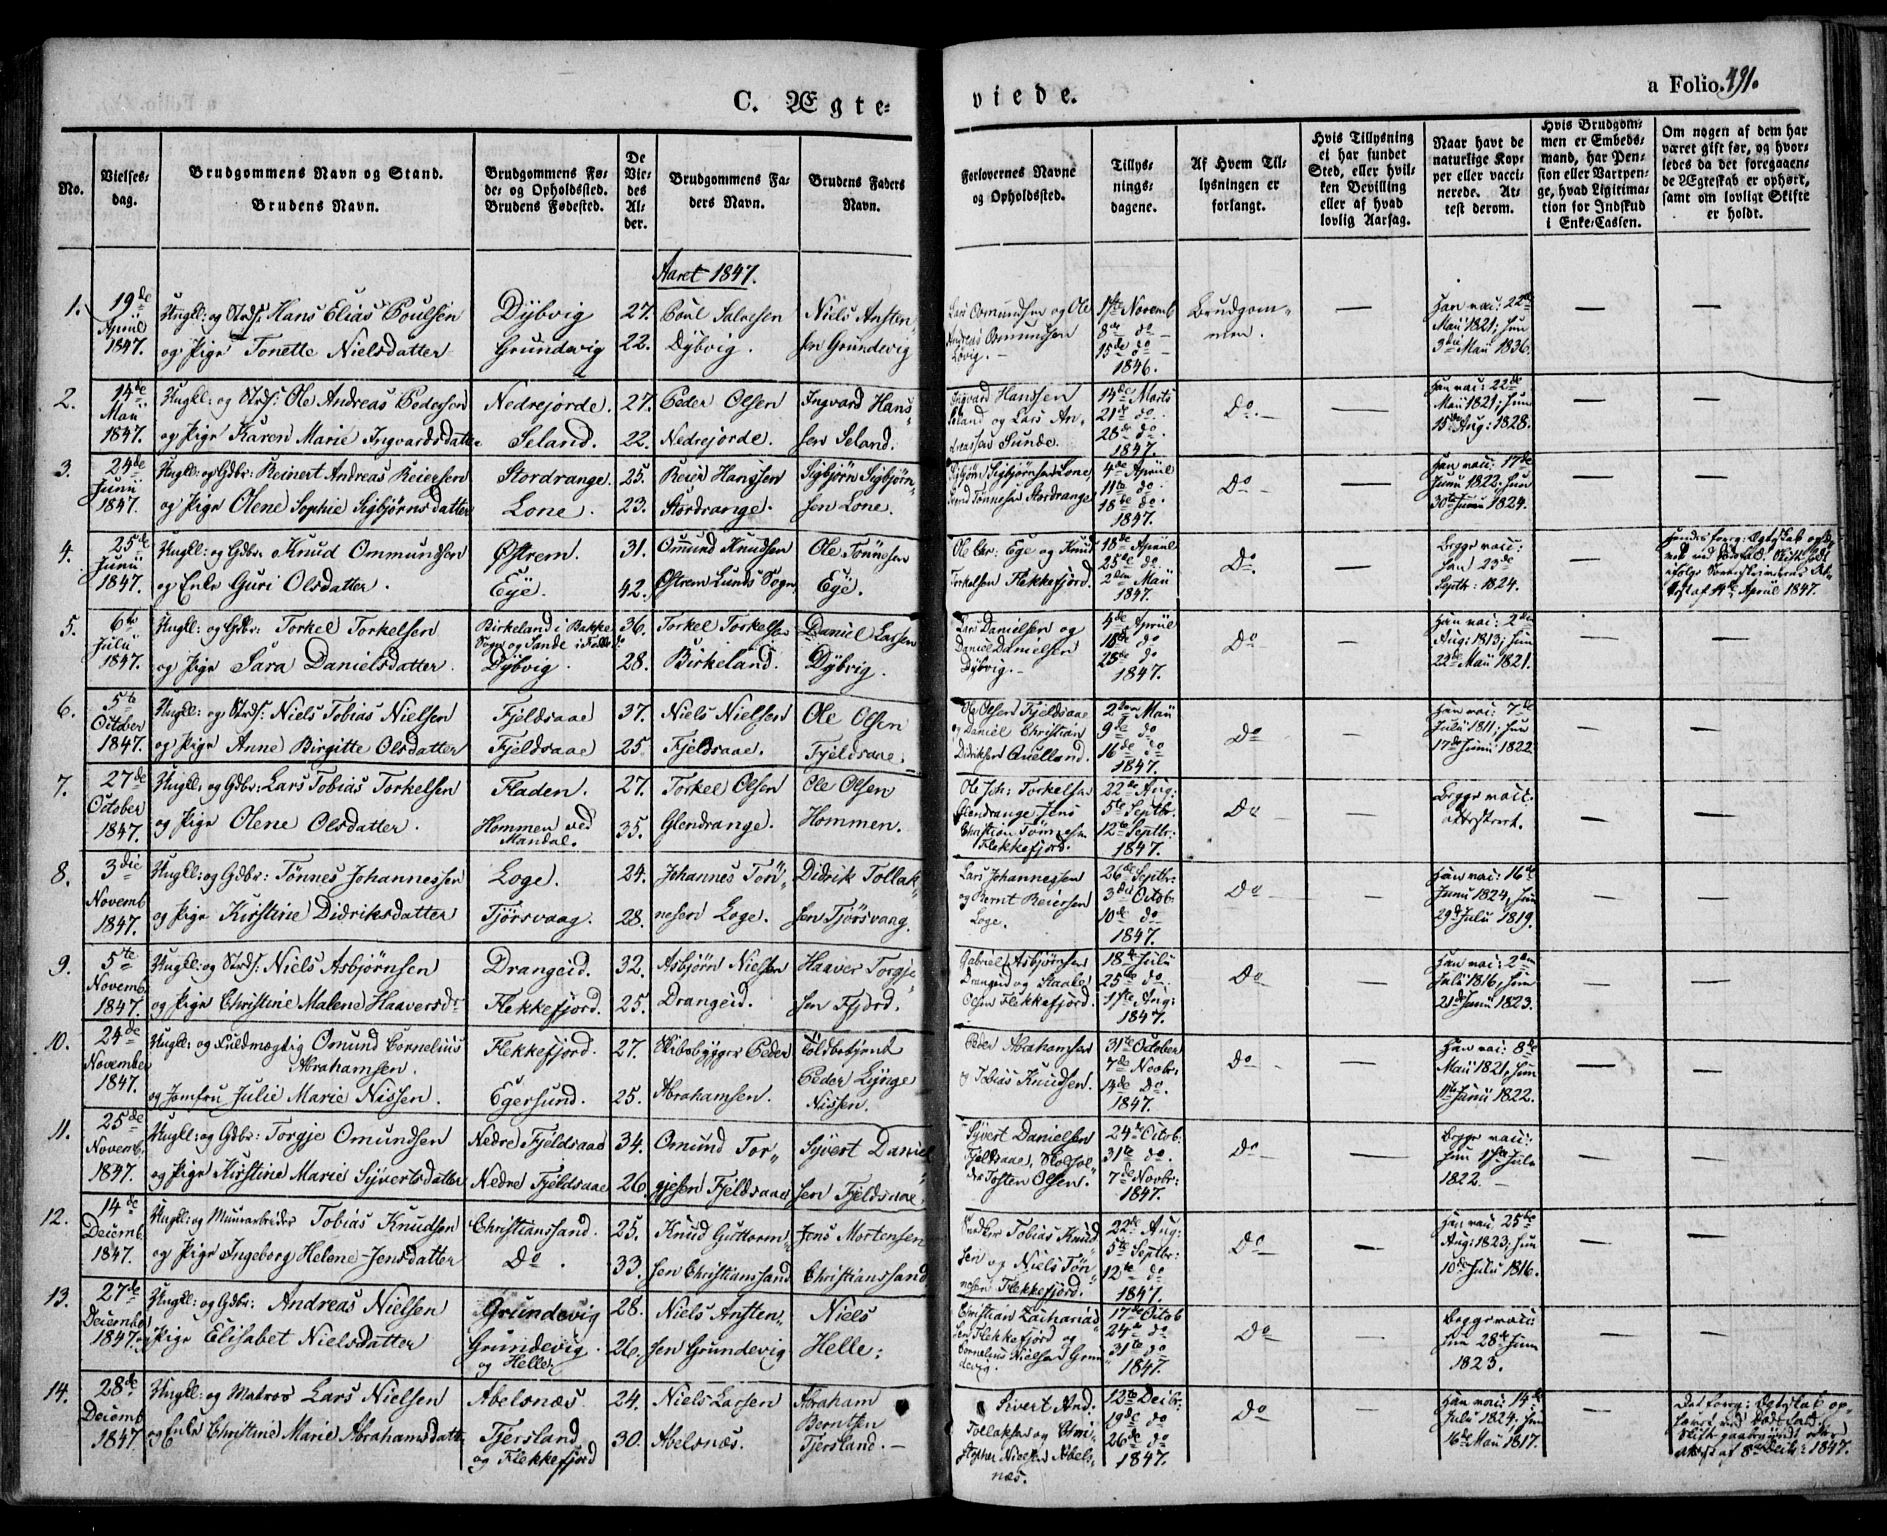 C. Ægte=
viede.
a Folio. 491.
No.
Vielses-
dag.
Brudgommens Navn og Stand.
Brudens Navn.
Brudgommens Fø-
de- og Opholdssted.
Brudens Fødested.
De
Vie-
des
Al-
der.
Brudgommens Fa-
ders Navn.
Brudens Faders
Navn.
Forlovernes Navne
og Opholdssted.
Tillys-
nings-
dagene.
Af Hvem Til-
lysningen er
forlangt.
Hvis Tillysning
ei har fundet
Sted, eller hvil-
ken Bevilling
eller af hvad
lovlig Aarsag.
Naar havt de
naturlige Kop-
per eller vacci-
nerede. At-
test derom.
Hvis Brudgom-
men er Embeds-
mand, har Pen-
sion eller Vartpen-
ge, hvad Ligitima-
tion for Indskud
i Enke-Cassen.
Om nogen af dem har
været gift før, og hvor-
ledes da det foregaaen-
de Ægteskab er ophørt,
samt om lovligt Skifte
er holdt.
Aaret 1847.
1.
19de
April
1847.
Ungkl: og Strds: Hans Elias Poulsen
og Pige Tonette Nielsdatter
Dybvig
Grundevig
27.
22.
Poul Salvesen
Dybvig.
Niels Ansten-
sen Grundevig
Lars Osmundsen og Ole
Andreas Osmundsen
Løvig.
1ste Novemb
8de do
15de do
1846.
Brudgom-
men.
Han vac: 22de
Mai 1821; hun
3die Mai 1836.
2.
14de
Mai
1847.
Ungkl: og Strds: Ole Andreas Pedersen
og Pige Karen Marie Ingvardsdatter
Nedrejorde.
Seland.
27.
22.
Peder Olsen
Nedrejorde.
Ingvard Hans-
sen Seland.
Ingvard Hanssen
Seland og Lars An-
dreassen Sunde.
14de Marts
21de do
28de do
1847.
Do.
Han vac: 22de
Mai 1821; hun
15de Aug: 1828.
3.
24de
Junii
1847.
Ungkl: og Gdbr: Reinert Andreas Reiersen
og Pige Olene Sophie Sigbjørnsdatter
Stordrange.
Lone.
25.
23.
Reier Hanssen
Stordrange.
Sigbjørn Sigbjørn-
sen Lone.
Sigbjørn Sigbjørnsen Lone,
Tønnesen Stordrange
4de April
11te do
18de do
1847.
Do
Han vac: 17de
Junii 1822. hun
30te Junii 1824.
4.
25de
Junii
1847.
Ungkl: og Gdbr: Knud Ommundsen
og Enke Guri Olsdatter.
Østrem.
Eye.
31.
42.
Omund Knudsen
Østrem Lunds Sogn
Ole Tønnesen
Eye.
Ole Chr: Eye og Knud
Torkelsen Flekkefjord.
18de April
25de do
2den Mai
1847.
Do.
Begge vac:
Han 23de
Septbr: 1824.
Hendes forrg: Egteskab ophæ-
vet ved Dødsfald. Skifte holdt
ifølge Sorenskriverens At-
test af 14de April 1847.
5.
6te
Julii
1847.
Ungkl: og Gdbr: Torkel Torkelsen
og Pige Sara Danielsdatter.
Birkeland i Bakke
Sogn og Sande i
Dybvig
36.
28.
Torkel Torkelsen
Birkeland.
Daniel Larsen
Dybvig.
Lars Danielsen og
Daniel Danielsen
Dybvig.
4de April
18de do
25de do
1847.
Do
Han vac: 2den
Aug: 1813; hun
22de Mai 1821.
6.
5te
October
1847.
Ungkl: og Strds: Niels Tobias Nielsen
og Pige Anne Birgitte Olsdatter
Fjeldsaae
Fjeldsaae
37.
25.
Niels Nielsen
Fjeldsaae.
Ole Olsen
Fjeldsaae.
Ole Olsen Fjeldsaae
og Daniel Christian
Didriksen Qvelland.
2den Mai
9de do
16de do
1847.
Do
Han vac: 7de
Julii 1811; hun
17de Junii 1822
7.
27de
October
1847.
Ungkl: og Gdbr: Lars Tobias Torkelsen
og Pige Olene Olsdatter.
Fladen.
Hommen ved
Mandal.
27.
35.
Torkel Olsen
Glendrange.
Ole Olsen
Hommen.
Ole Joh: Torkelsen
Glendrange, Jens
Christian Tønnesen
Flekkefjord.
22de Aug:
5te Septbr:
12te Septbr:
1847.
Do
Begge vacc:
attesteret.
8.
3die
Novemb
1847.
Ungkl: og Gdbr: Tønnes Johannessen
og Pige Kirstine Didriksdatter
Loge.
Tjørsvaag.
24.
28.
Johannes Tøn-
nesen Loge.
Didrik Tollak-
sen Tjørsvaag
Lars Johannessen
og Bernt Reiersen
Loge.
26de Septbr:
3die Octob:
10de do
1847.
Do
Han vac: 16de
Junii 1824, hun
29de Julii 1819.
9.
5te
Novemb.
1847.
Ungkl: og Strds: Niels Asbjørnsen
og Pige Christine Malene Haaversdr
Drangeid.
Flekkefjord.
32.
25.
Asbjørn Nielsen
Drangeid.
Haaver Torgje-
sen Fjord.
Gabriel Asbjørnsen
Drangeid og Staale
Olsen Flekkefjord.
18de Julii
25de do.
1ste Aug:
1847.
Do
Han vac: 2den
Julii 1816, hun
21de Junii 1823.
10.
24de
November
1847.
Ungkl: og Fuldmægtig Omund Cornelius
Abrahamsen.
og Jomfru Julie Marie Nissen.
Flekkefjord.
Egersund.
27.
25.
Skibsbygger Peder
Abrahamsen.
Toldbetjent
Peder Lynge
Nissen.
Peder Abrahamsen
og Tobias Knudsen.
31te October
7de Novbr:
14de Do.
1847.
Do
Han vac: 8de
Mai 1821, hun
11te Junii 1822.
11.
25de
Novemb.
1847.
Ungkl: og Gdbr: Torgje Omundsen
og Pige Kirstine Marie Syvertsdatter
Nedre Fjeldsaae
Nedre Fjeldsaae
34.
26.
Omund Tor-
gjesen Fjeldsaae
Syvert Daniel-
sen Fjeldsaae.
Syvert Danielsen
Fjeldsaae, Skolehol-
der Tosten Olsen.
24de Octob:
31te do.
7de Novbr:
1847.
Do
Begge vac:
hun 1ste Julii
1822.
12.
14de
Decemb.
1847.
Ungkl: og Muurarbeider Tobias Knudsen
og Pige Ingeborg Helene Jensdatter
Christianssand.
Do.
25.
33.
Knud Guttorm-
sen Christianssand
Jens Mortensen
Christianssand
Tobias Knud-
sen og Niels Tøn-
nesen Flekkefjord.
22de Aug:
5te Septbr:
12te do
1847.
Do
Han vac: 25de
Aug: 1823; hun
10de Julii 1816.
13.
27de
Decembr
1847.
Ungkl: og Gdbr: Andreas Nielsen
og Pige Elisabet Nielsdatter
Grundevig
Grundevig
og Helle
28.
26.
Niels Ansten-
sen Grundevig
Niels
Helle.
Christian Zachariad-
sen Flekkefjord og
Cornelius Nielsen Grun-
devig.
17de Octob
24de do
31te do
1847.
Do
Begge vac:
hun 28de Junii
1823.
14.
28de
Decemb
1847.
Ungkl: og Matros Lars Nielsen
og Enke Christine Marie Abrahamsdatt.
Abelsnæs
Tjersland
og Flekkefjord
24.
30.
Niels Larsen
Abelsnæs.
Abraham
Berntsen
Tjersland.
Sivert And:
Tollaksen og Chri-
stopher Nielsen Abels-
næs.
12te Decbr:
19de do
26de do
1847.
Do
Han vac: 14de
Julii 1824. hun
16de Mai 1817.
Det forrg: Egteskab op-
hævet ved Dødsfald.
Attest af 8de Decbr: 1847.